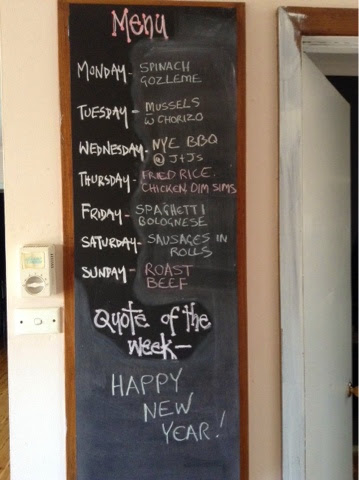 Menu
MONDAY- SPINACH
GOZLEME
TUESDAY- MUSSELS
W CHORIZO
WEDNESDAY- NYE BBQ
@ J+J's
THURSDAY- FRIED RICE.
CHICKEN DIM SIMS
FRIDAY- SPAGHETTI
BOLOGNESE
SATURDAY- SAUSAGES IN
ROLLS
SUNDAY- ROAST
BEEF
Quote of the
week-
HAPPY
NEW
YEAR!